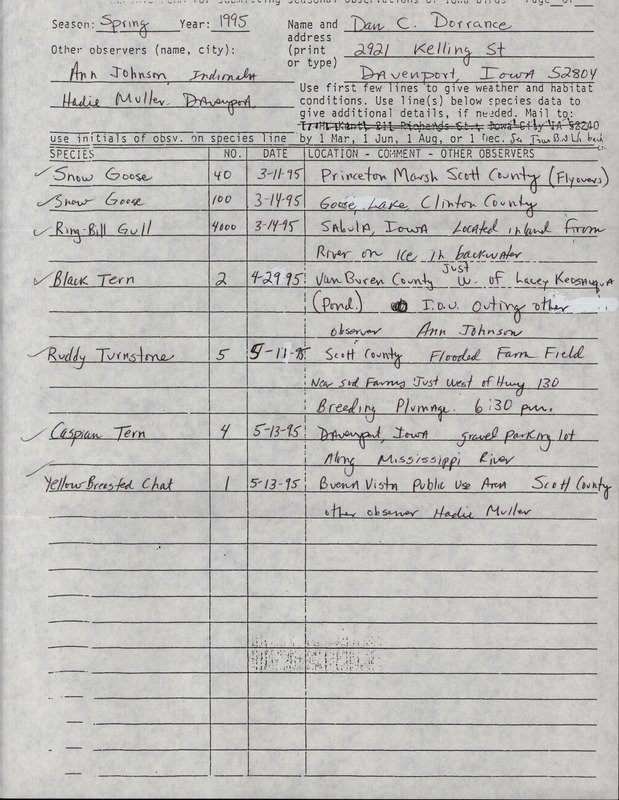 Season: Spring Year: 1995 Name and Dan C. Dorrance
address
Other observers (name, city): (print 2921 Kelling St
or type)
Ann Johnson, Indianola Davenport, Iowa 52804
Hadie Muller. Davenport Use first few lines to give weather and habitat
conditions. Use line(s) below species data to
give additional details, if needed. Mail to:
use initials of obsv. on species line by 1 Mar, 1 Jun, 1 Aug, or 1 Dec.
SPECIES NO. DATE LOCATION - COMMENT - OTHER OBSERVERS
Snow Goose 40 3-11-95 Princeton Marsh Scott County (Flyovers)
Snow Goose 100 3-14-95 Goose Lake Clinton County
Ring-Bill Gull 4000 3-14-95 Sabula, Iowa Located inland From
River on Ice in backwater
Black Tern 2 4-29-95 Van Buren County Just W. of Lacey Keosauqua
(Pond.) I.O.U. Outing other
observer Ann Johnson
Ruddy Turnstone 5 5-11-95 Scott County Flooded Farm Field
Near Sod Farms Just West of Hwy 130
Breeding Plumage. 6:30 p.m.
Caspian Tern 4 5-13-95 Davenport, Iowa gravel parking lot
Along Mississippi River
Yellow Breasted Chat 1 5-13-95 Buena Vista Public Use Area Scott County
other observer Hadie Muller